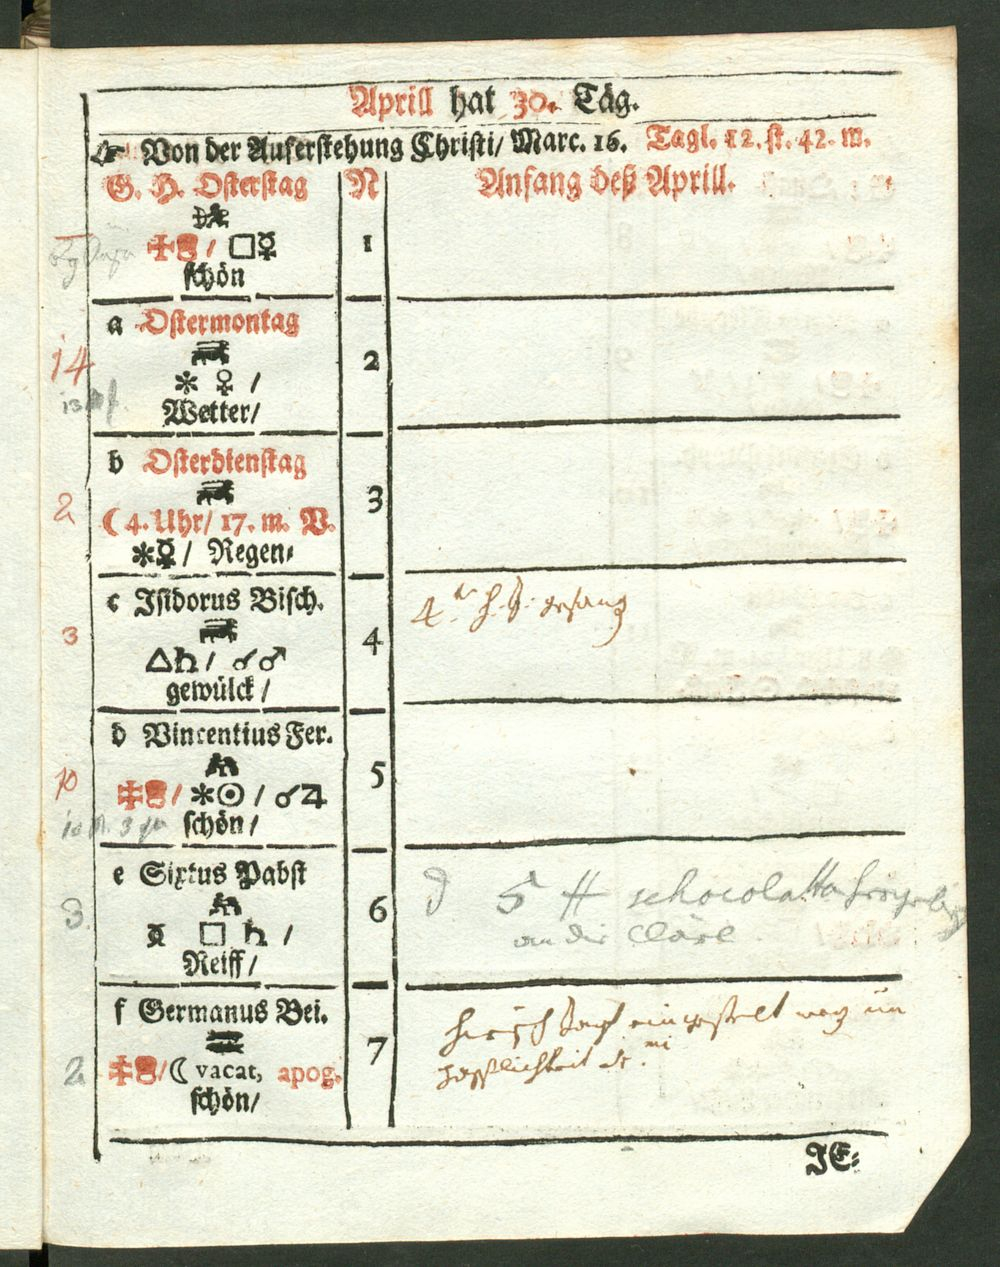 Aprill hat 30. Täg.
Von der Auferstehung Christi/ Marc. 16. Tagl. 12. st. 42. m.
G. H. Osterstag N Anfang deß Aprill.
☩ / □☿ 1
schön
a Ostermontag
14
✻ ♀ / 2
Wetter/
b Osterdienstag
2 ☾ 4. Uhr/ 17. m. V. 3
✻☿ / Regen⸗
c Isidorus Bisch.
3 4
△♄ / ☌♂
gewülck /
4
d Vincentius Fer.
☩ / ✻☉ / ☌♃ 5
schön /
e Sixtus Pabst
3 □ ♄ / 6 5 ℔ schocolatta
an die
Reiff /
f Germanus Bei.
2 ☩ / ☾ vacat, apog. 7 eingestelt weg
schön/
JE⸗